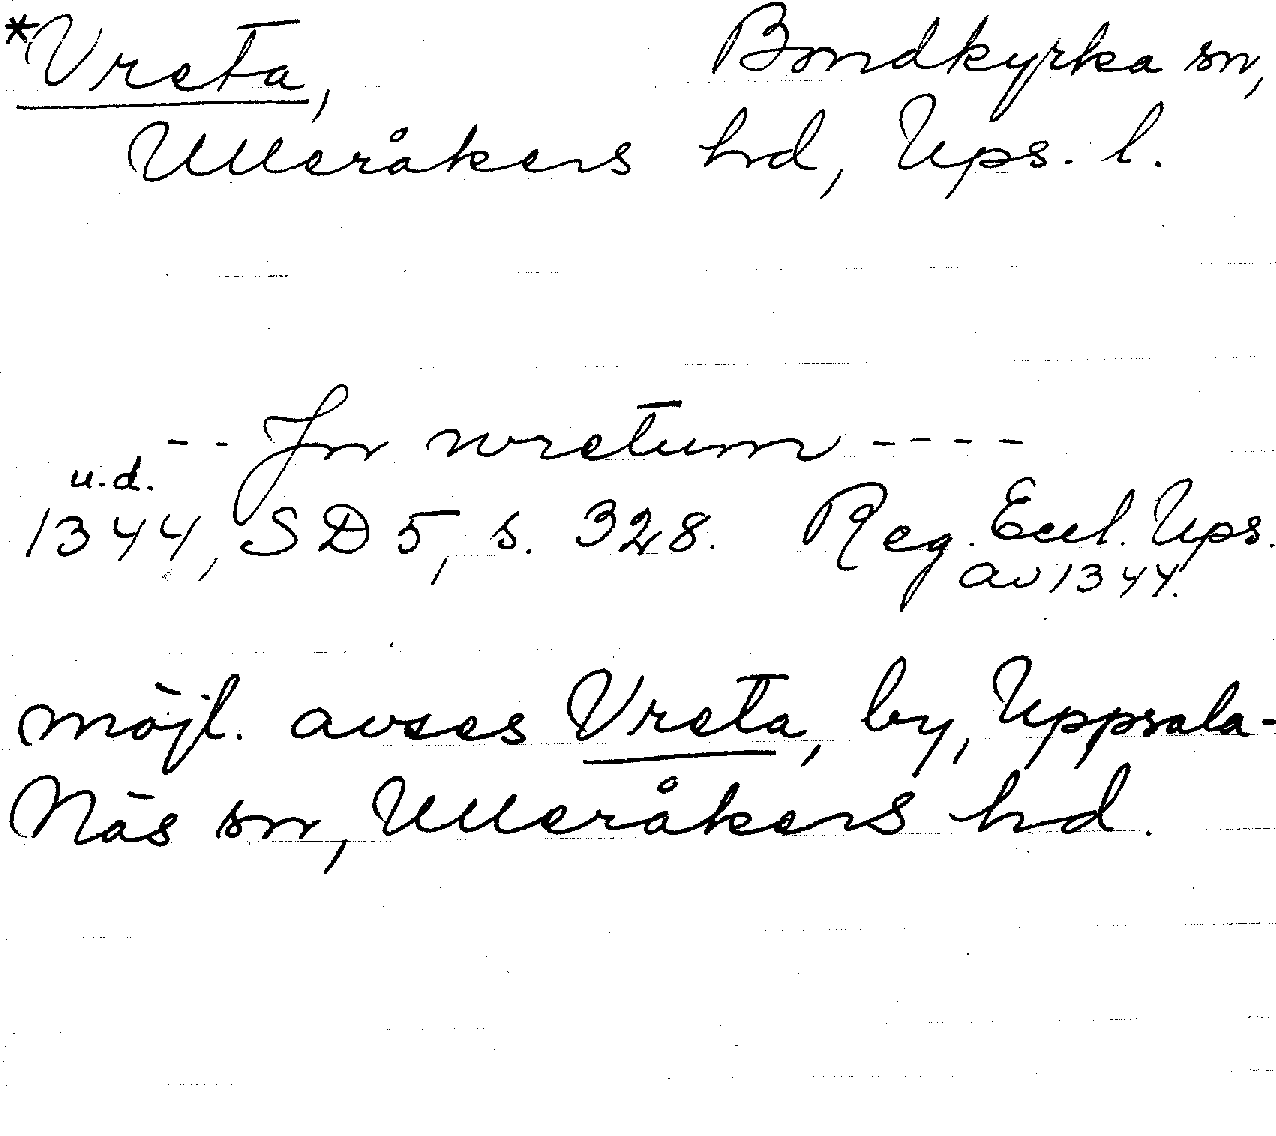 *Vreta, Bondkyrka sn,
Ulleråkers hd, Ups. l.
-- Jn wretum ----
u.d.
1344, SD 5, s. 328. Reg. Eccl. Ups.
av 1344.
möjl. avses Vreta, by, Uppsala-
Näs sn, Ulleråkers hd.